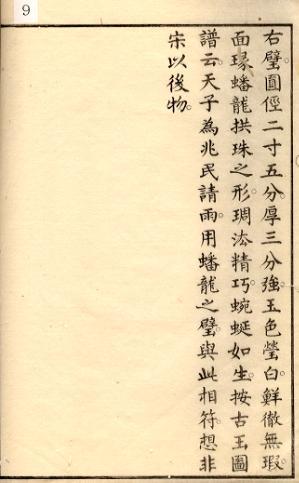 右璧圓徑二寸五分厚三分強玉色瑩白鮮徹無瑕
面瑑蟠龍拱珠之形琱泑精巧蜿蜒如生按古玉圖
譜云天子為兆民請雨用蟠龍之璧與此相符想非
宋以後物
9